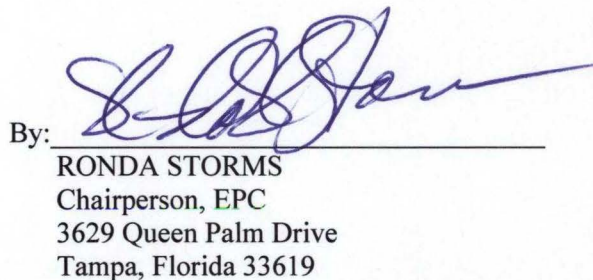 By:
RONDA STORMS
Chairperson, EPC
3629 Queen Palm Drive
Tampa, Florida 33619